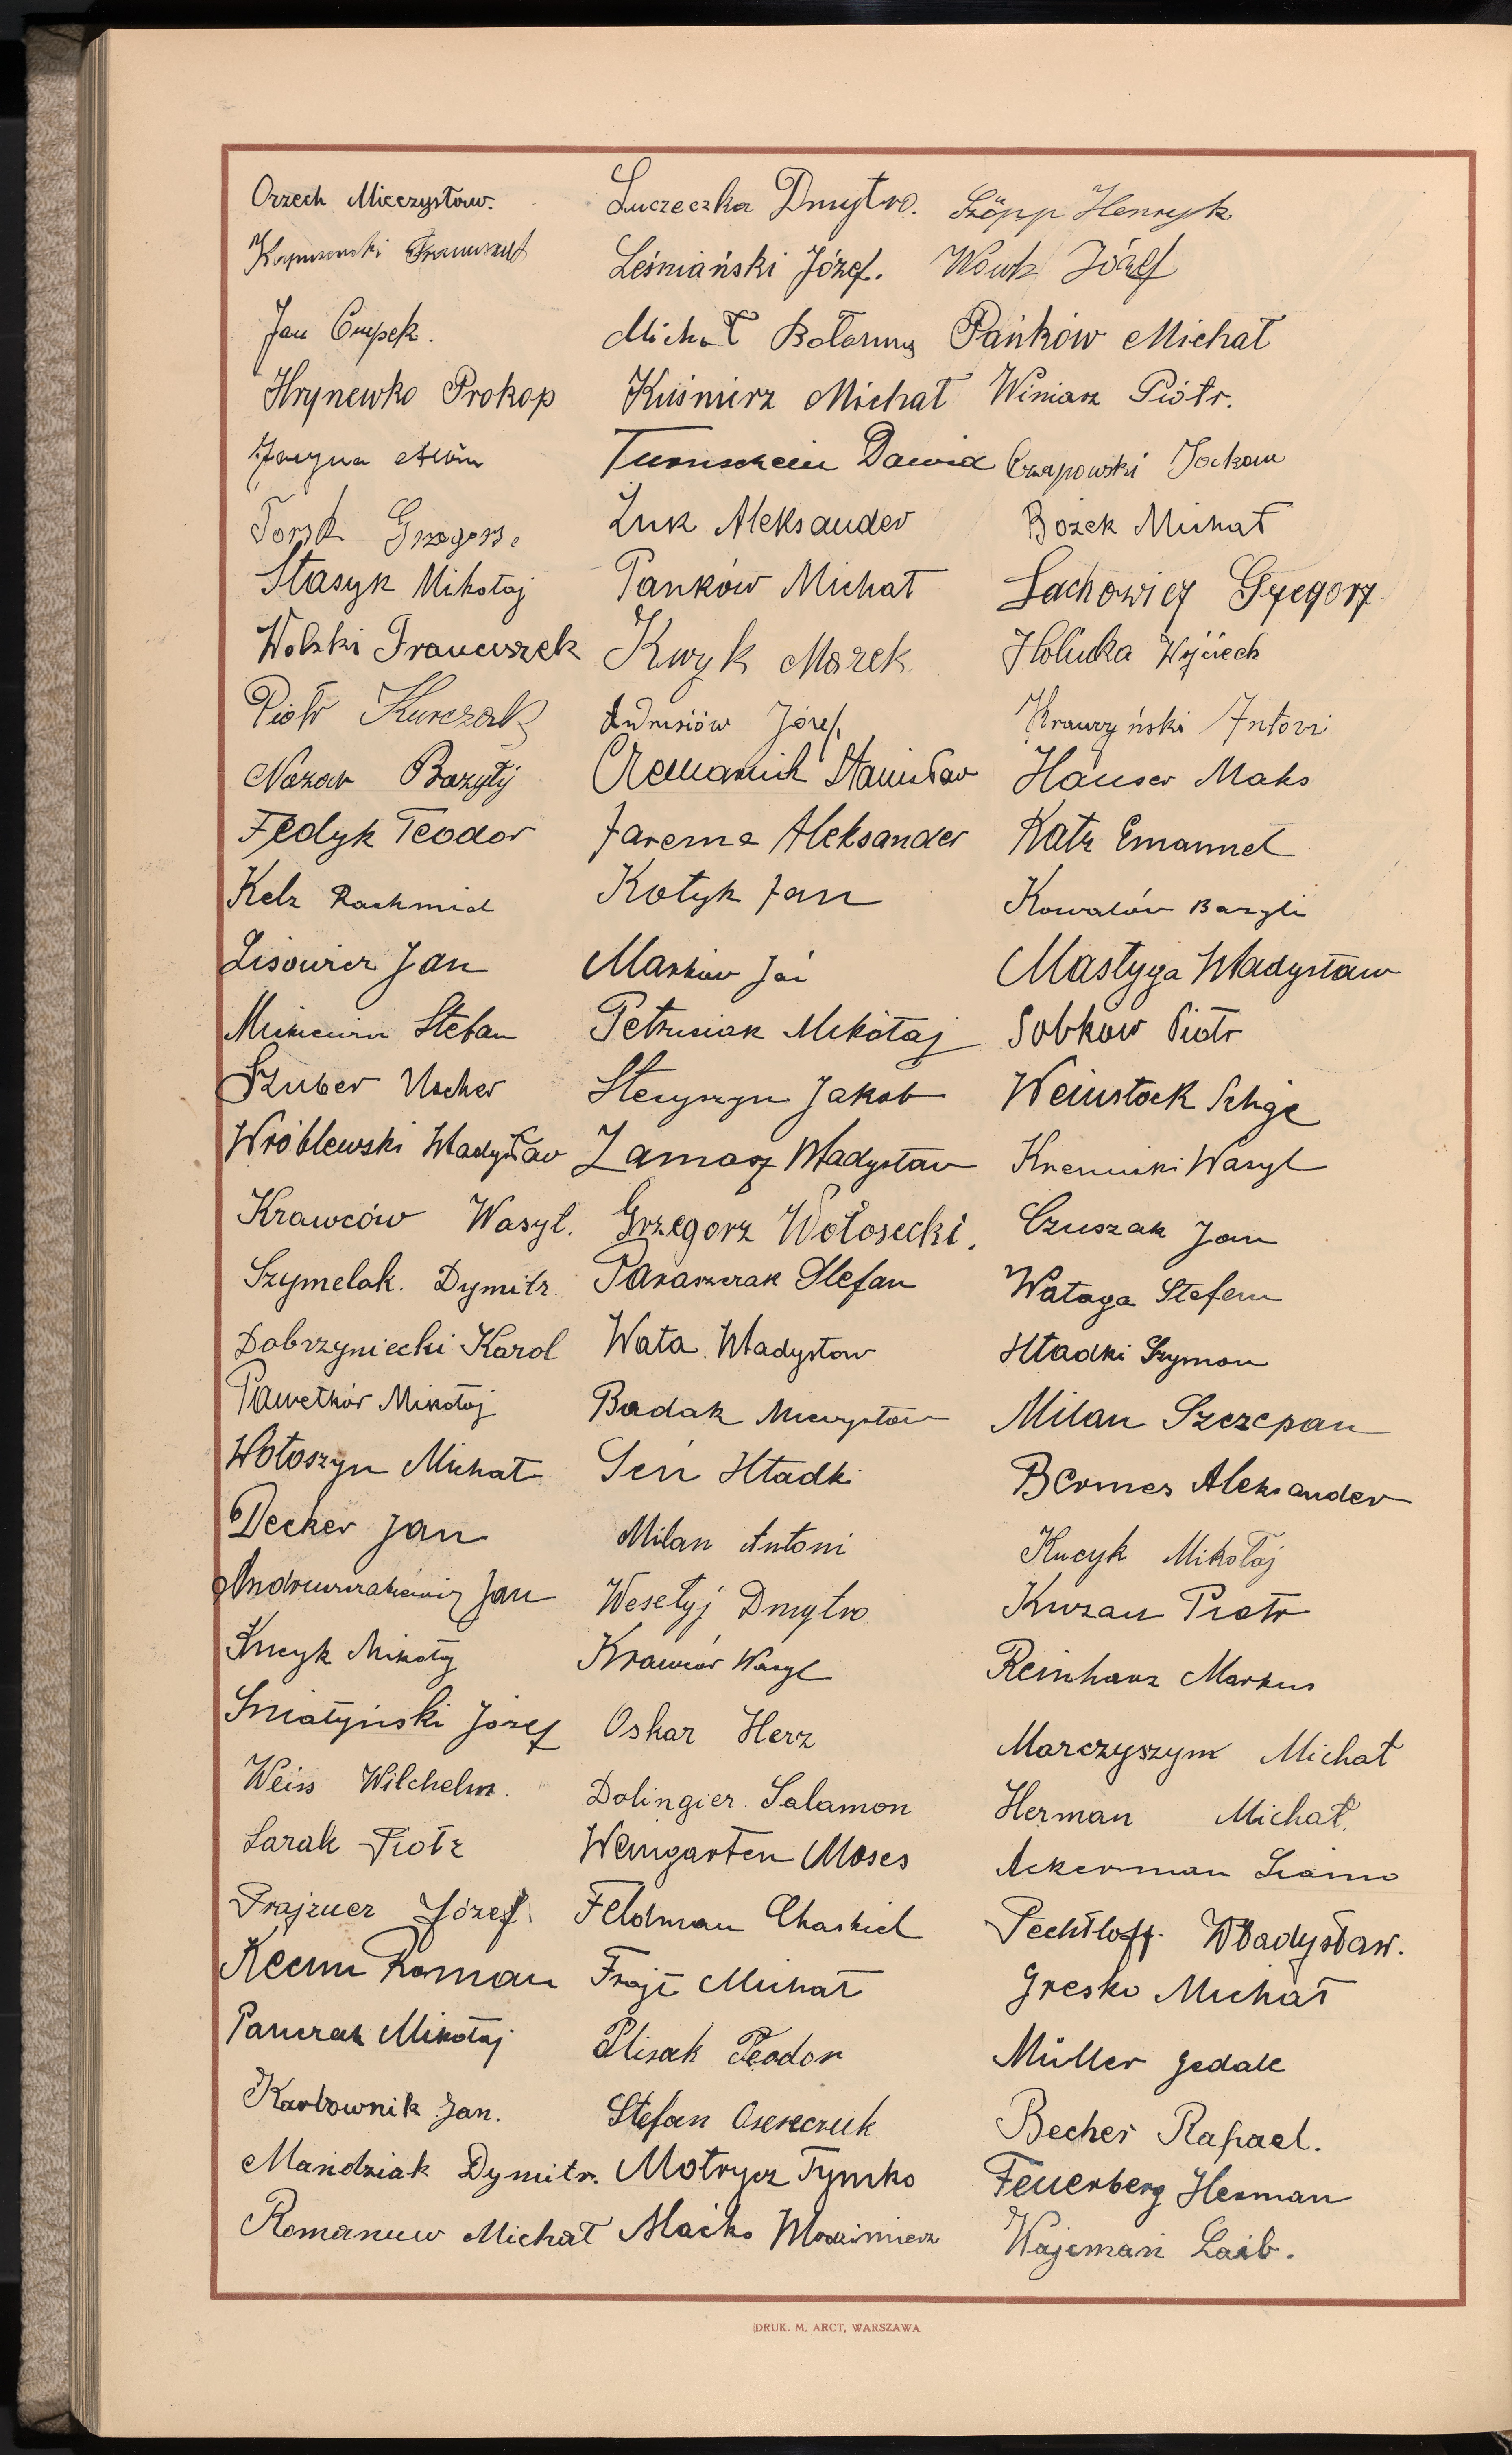 Orzech Mieczysław.
Jan Czupek.
Hrynewko Prokop
Torsk Grzegorz.
Stasyk Mikołaj
Wolski Franciszek
Piotr Kurczak
Nazar Bazyłÿ
Fedyk Teodor
Kelz Rachmiel
Lisowicz Jan
Stefan
Szuber Uscher
Wróblewski Władysław
Krawców Wasyl.
Szymelak. Dymitr.
Dobrzyniecki Karol
Pawełków Mikołaj
Wołoszyn Michał
Decker Jan
Andruszakiewicz Jan
Kucyk Mikołaj
Śniatyński Józef
Weiss Wilchelm.
Sarak Piotr
Frajzuer Józef.
Roman
Panczak Mikołaj
Karbownik Jan.
Mandziak Dymitr.
Romanuw Michał
Łuczeczka Dmytro.
Leśniański Józef.
Michał
Kuśnierz Michał
Dawid
Żuk Aleksander
Pańków Michał
Kwyk Marek
Andrusiów Józef.
Stanisław
Jarema Aleksander
Kotyk Jan
Markow Jan
Petrusiak Mikołaj
Stecyszyn Jakob
Zamasz Władysław
Grzegorz Wołosecki.
Paraszczak Stefan
Wata Władysław
Badak Mieczysław
Seń Hładki
Milan Antoni
Wesełyj Dmytro
Krawców Wasyl
Oskar Herz
Dolingier. Salamon
Weingarten Moses
Feldman Chaskiel
Frajt Michał
Plisak Teodor
Stefan Osereczuk
Motrycz Tymko
Maćko Włodzimierz
Szöpp Henryk
Wowk Józef
Pańków Michał
Winiarz Piótr.
Czapowski
Bożek Michał
Lachowicz Grzegorz.
Holucka Wojciech
Krawczyński Antoni
Hauser Maks
Katz Emanuel
Kowalów Bazyli
Mastyga Władysław
Sobków Piotr
Weinstock Selige
Kreminski Wasyl
Czuszak Jan
Wataga Stefan
Hładki Szymon
Milan Szczepan
Bermes Aleksander
Kucyk Mikołaj
Kurzan Piotr
Reinharz Markus
Marczyszym Michał
Herman Michał.
Ackerman
Pechtloff. Władysław.
Gresko Michał
Müller Gedale
Becher Rafael.
Feuerberg Herman
Wajcman Laib.
DRUK. M. ARCT, WARSZAWA